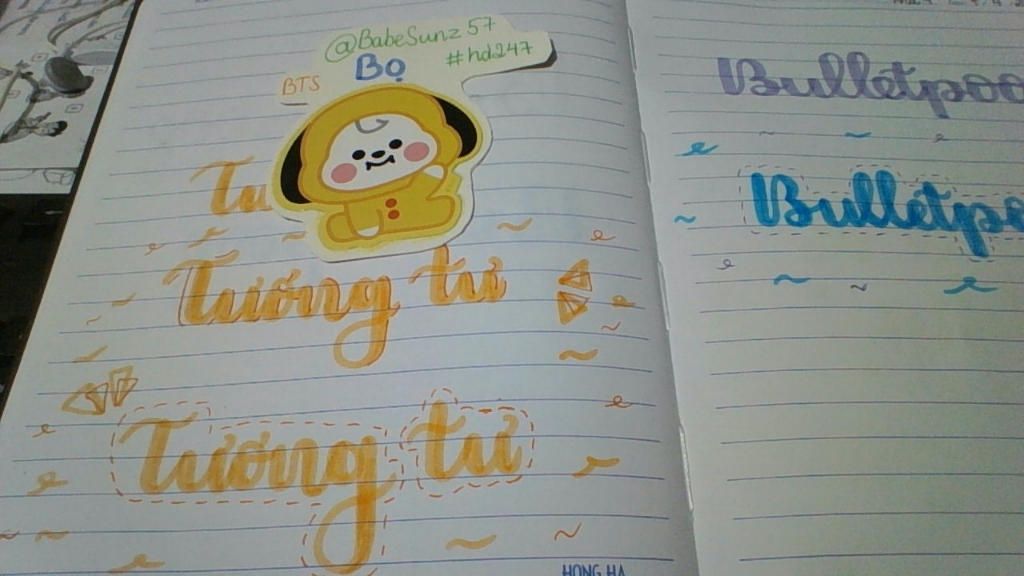 @BabeSunz 57
#hd247
Bọ
BTS
Tương tư
Tương tư
HONG HA
Bulletpoo
Bulletpo